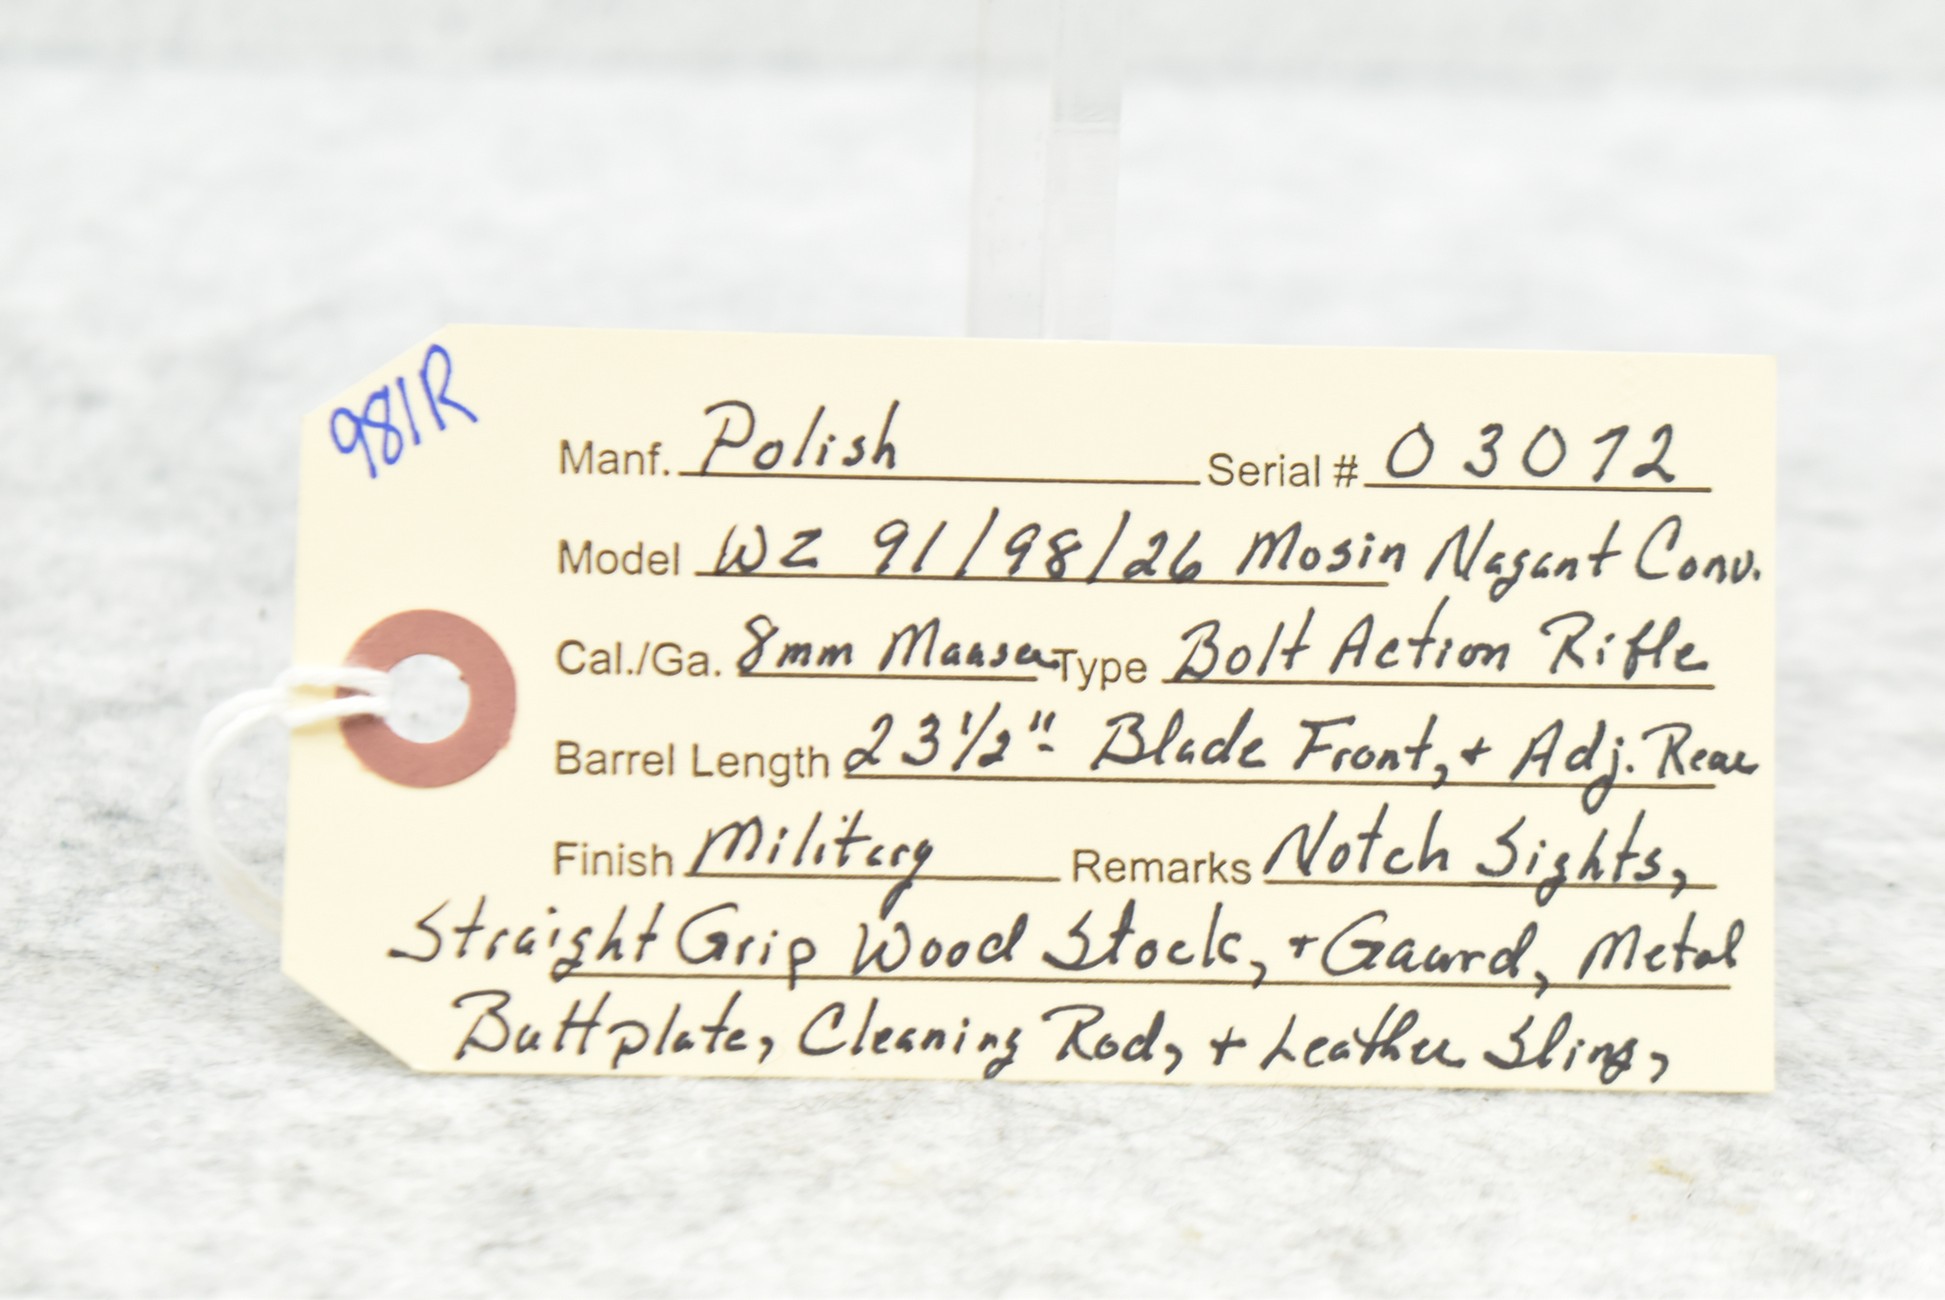 981R
Manf. Polish Serial # 03072
Model WZ 91/98/26 Mosin Nagant Conv.
Cal./Ga. 8mm Mauser Type Bolt Action Rifle
Barrel Length 23 1/2" - Blade Front, + Adj. Rear
Finish Military Remarks Notch Sights,
Straight Grip Wood Stock, + Gaurd, Metal
Buttplate, Cleaning Rod, + Leather Sling,